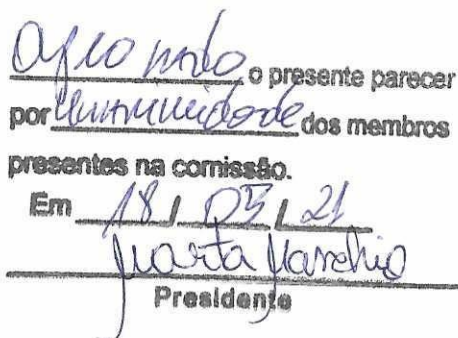 Aprovado o presente parecer
por unanimidade dos membros
presentes na comissão.
Em 18 / 05 / 21
Marta
Presidente